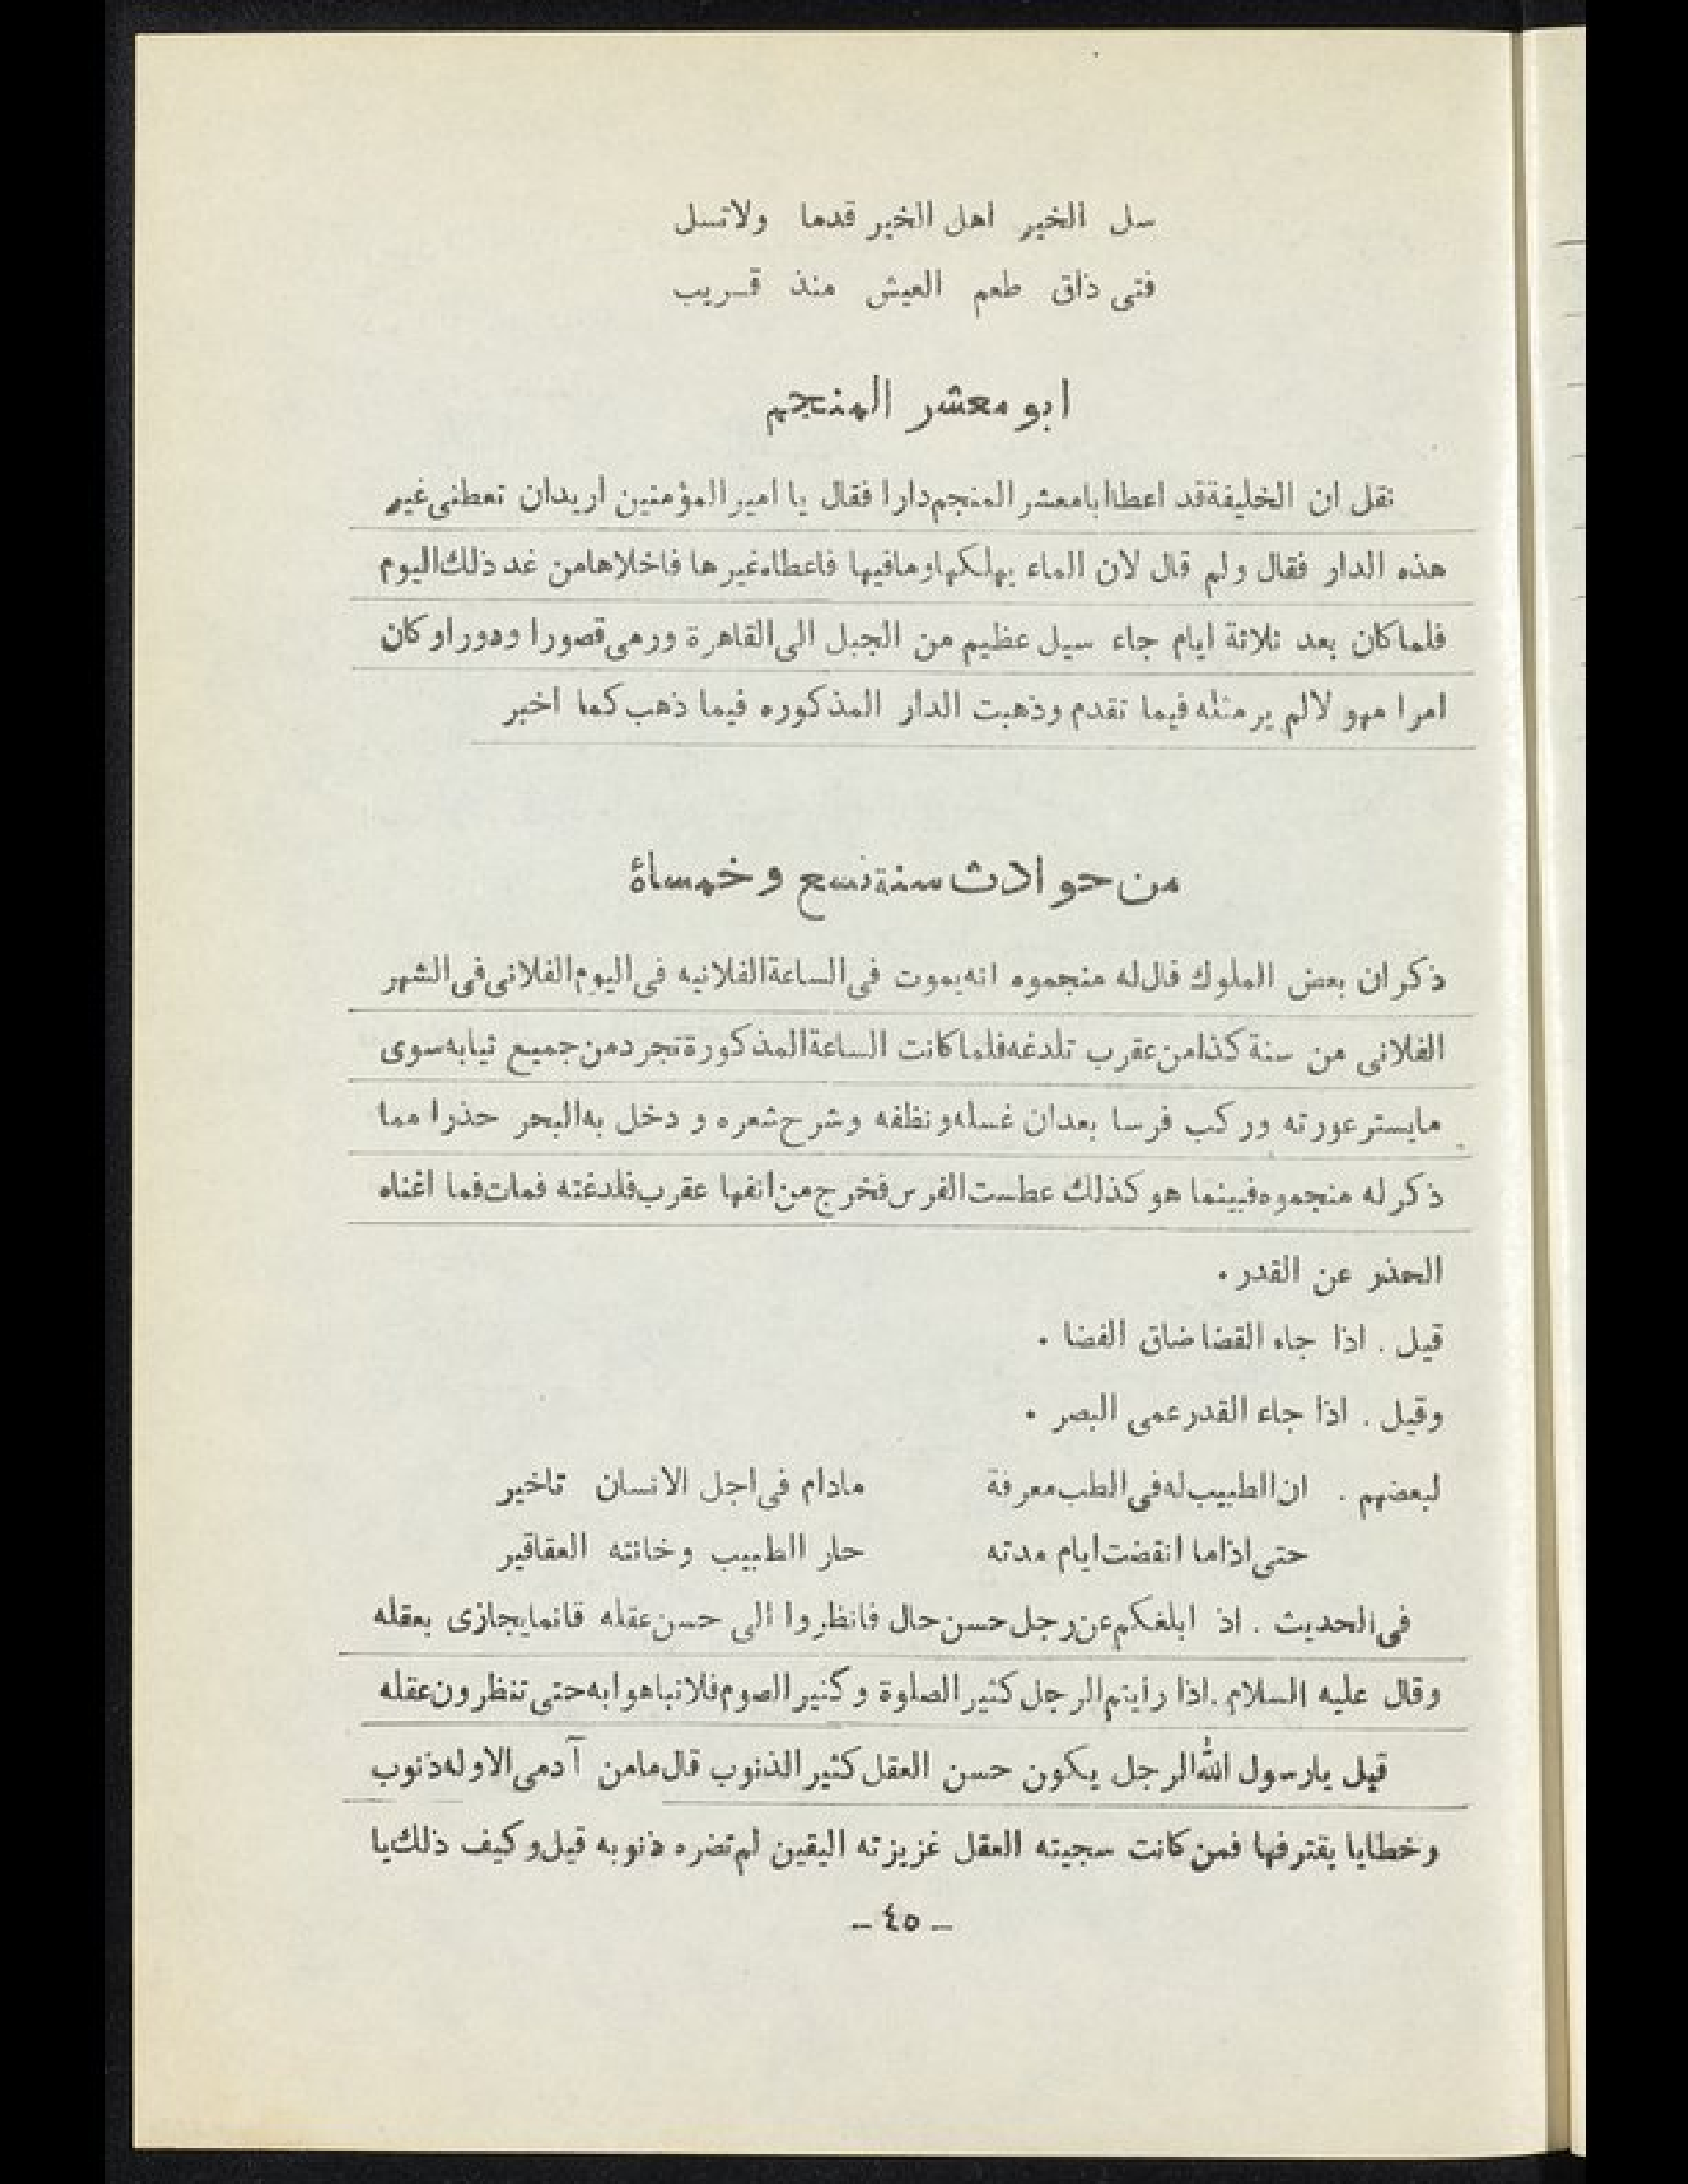 سل الخير اهل الخير قدما ولاتسل
فتى ذاق طعم العيش منذ قـريب
ابو معشر المنجم
نقل ان الخليفة قد اعطا ابامعشر المنجم دارا فقال يا امير المؤمنين اريدان تعطنى غير
هذه الدار فقال ولم قال لان الماء يهلكها ومافيها فاعطاه غيرها فاخلاها من غد ذلك اليوم
فلما كان بعد ثلاثة ايام جاء سيل عظيم من الجبل الى القاهرة ورمى قصورا ودورا وكان
امرا مهو لالم ير مثله فيما تقدم وذهبت الدار المذكوره فيما ذهب كما اخبر
من حوادث سنة تسع وخمساة
ذكر ان بعض الملوك قال له منجموه انه يموت فى الساعة الفلانيه فى اليوم الفلانى فى الشهر
الفلانى من سنة كذا من عقرب تلدغه فلما كانت الساعة المذكورة تجرد من جميع ثيابه سوى
مايستر عورته وركب فرسا بعدان غسله ونظفه وشرح شعره و دخل به البحر حذرا مما
ذكر له منجموه فبينما هو كذلك عطست الفرس فخرج من انفها عقرب فلدغته فمات فما اغناه
الحذر عن القدر .
قيل . اذا جاء القضا ضاق الفضا .
وقيل . اذا جاء القدر عمى البصر .
لبعضهم . ان الطبيب له فى الطب معرفة مادام فى اجل الانسان تاخير
حتى اذاما انقضت ايام مدته حار الطبيب وخانته العقاقير
فى الحديث . اذ ابلغكم عن رجل حسن حال فانظروا الى حسن عقله فانما يجازى بعقله
وقال عليه السلام . اذا رأيتم الرجل كثير الصلوة وكثير الصوم فلا تباهوا به حتى تنظرون عقله
قيل يارسول الله الرجل يكون حسن العقل كثير الذنوب قال مامن آدمى الا وله ذنوب
وخطايا يقترفها فمن كانت سجيته العقل غزيزته اليقين لم تضره ذنوبه قيل وكيف ذلك يا
– ٤٥ –